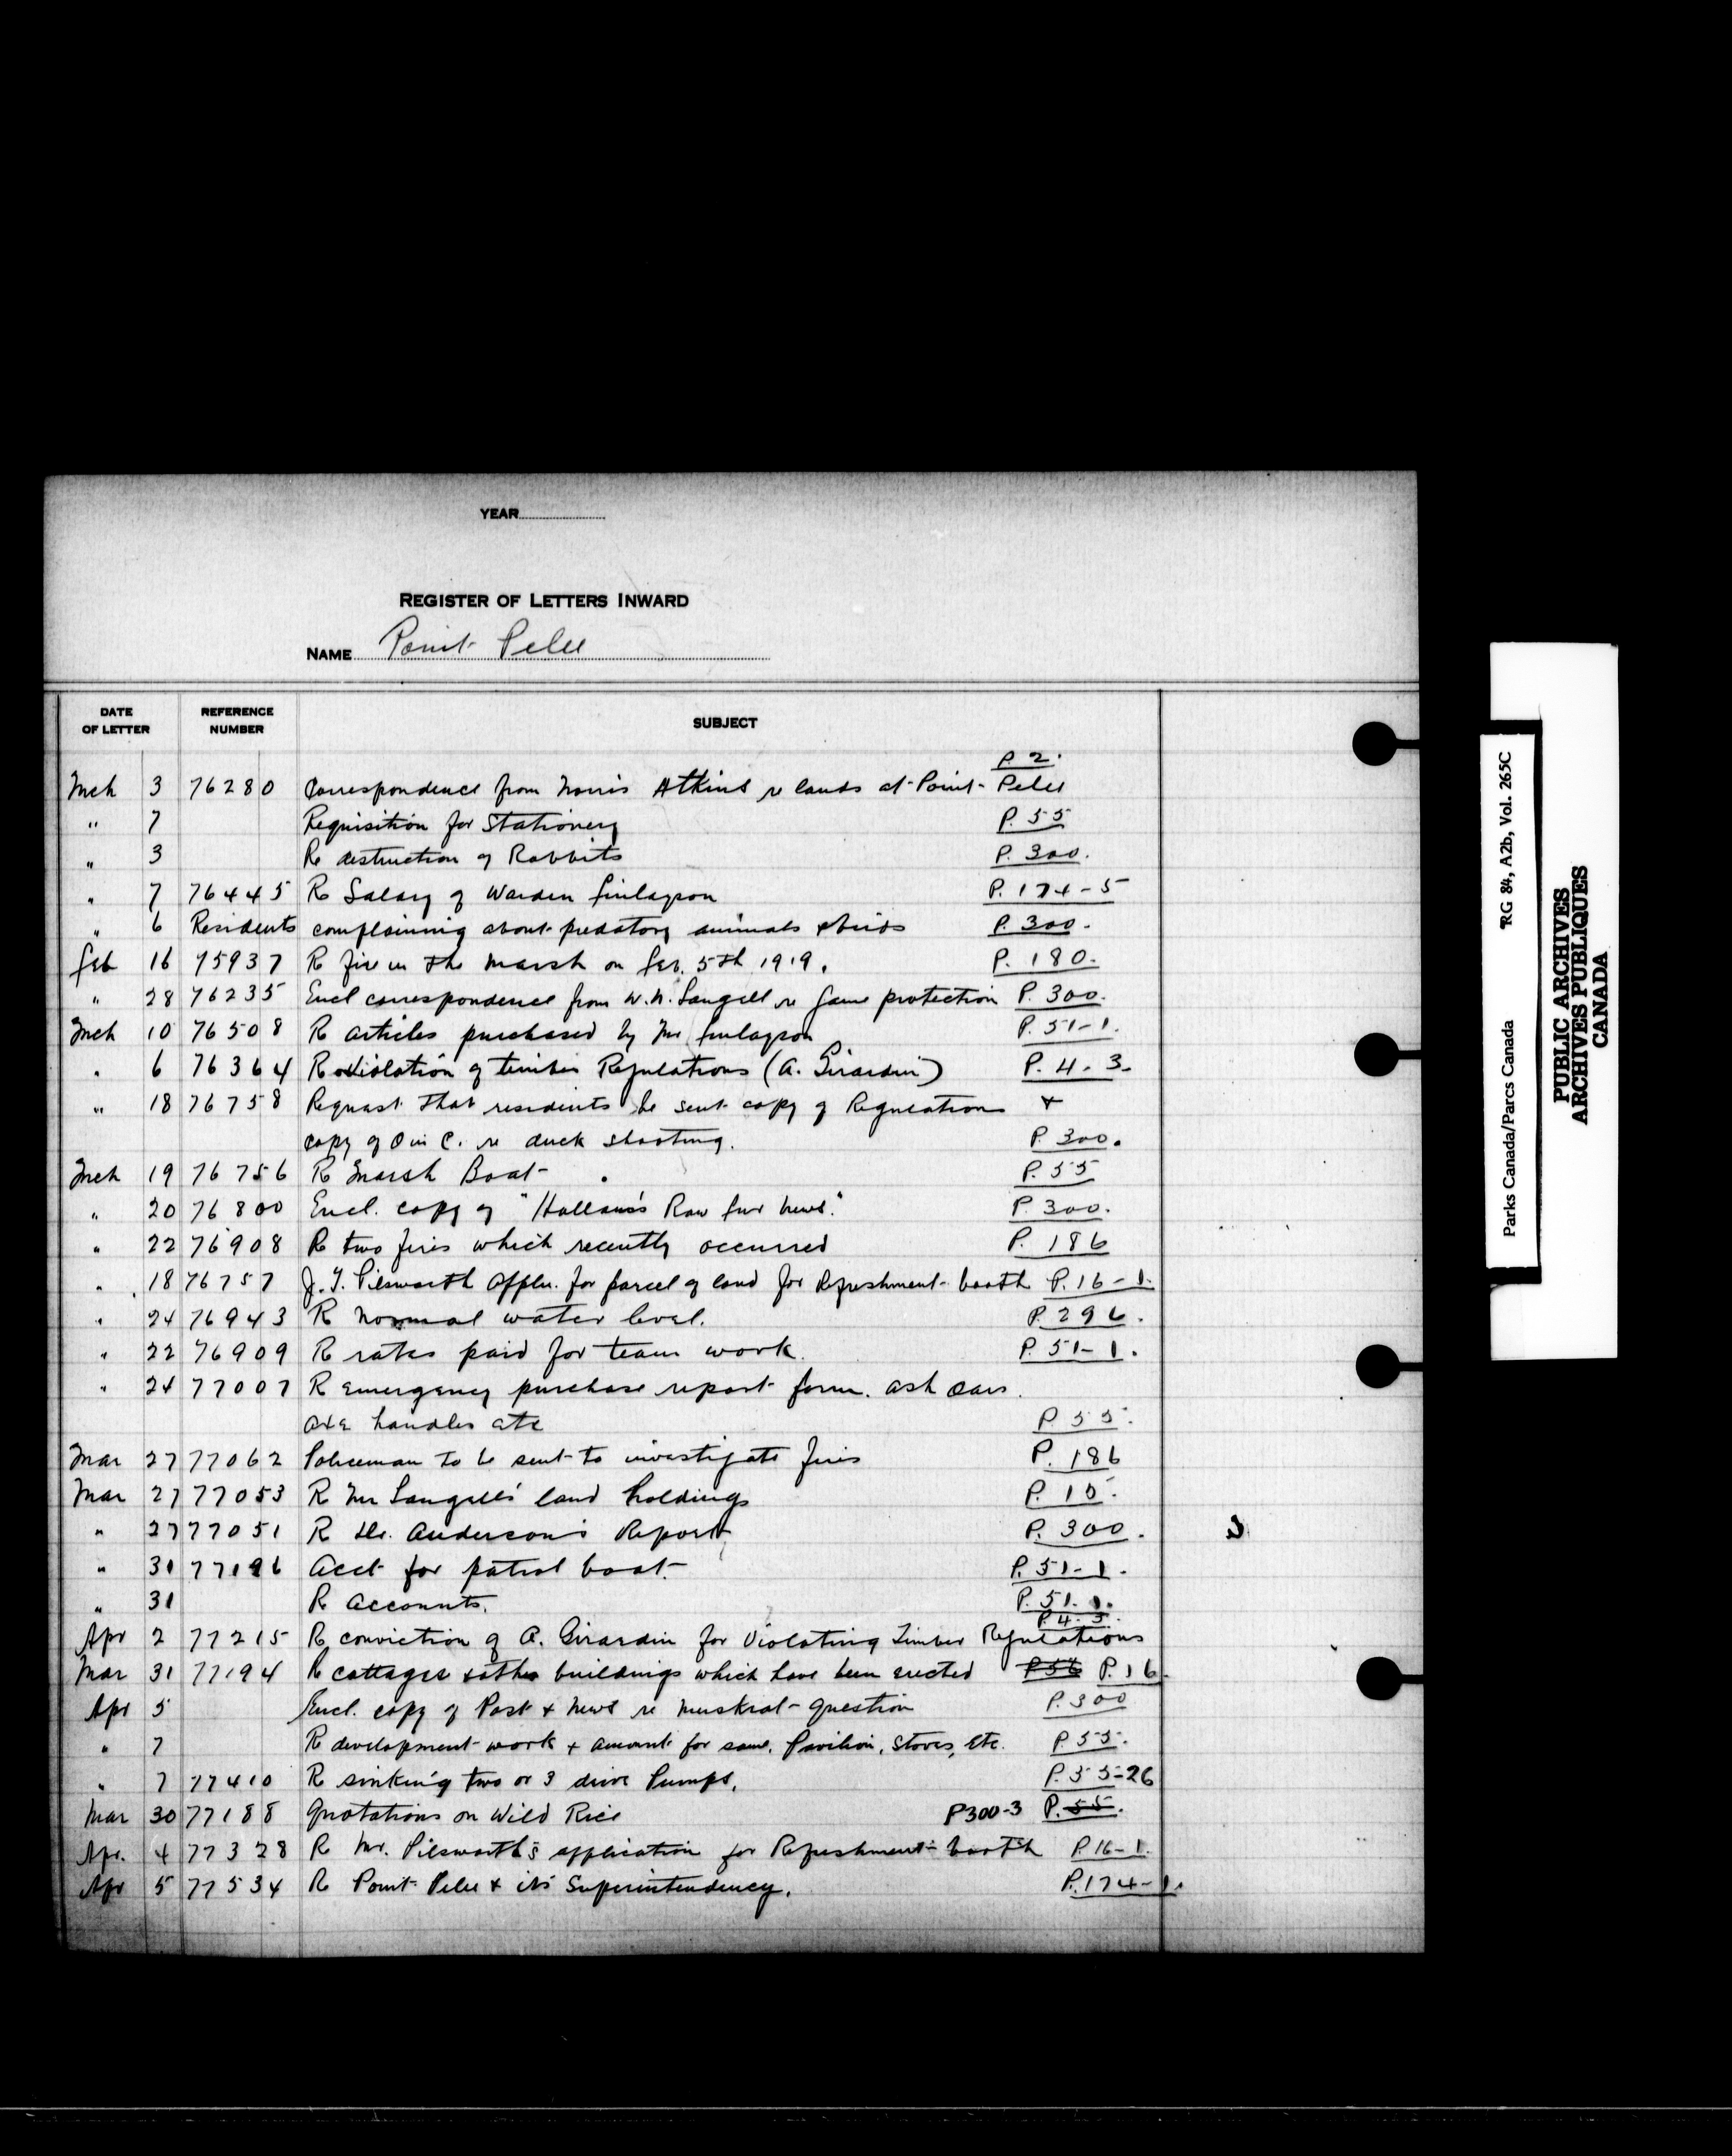 YEAR
REGISTER OF LETTERS INWARD
NAME Point Pelee
DATE OF LETTER REFERENCE NUMBER SUBJECT
P. 2.
Mch 3 76280 Correspondence from Norris Atkins re lands at Point Pelee
" 7 Requisition for Stationery P. 55
" 3 Re destruction of Rabbits P. 300.
" 7 76445 Re Salary of Warden Finlayson P. 174-5
" 6 Residents complaining about predatory animals & birds P. 300.
Feb 16 75937 Re fire in the marsh on Feb. 5th 1919. P. 180.
" 28 76235 Encl correspondence from W.N. Langell re game protection P. 300.
Mch 10 76508 Re articles purchased by Mr Finlayson P. 51-1.
" 6 76364 Re violation of timber Regulations (A. Girardin) P. 4-3.
" 18 76758 Request that residents be sent copy of Regulations &
copy of O in C. re duck shooting. P. 300.
Mch 19 76756 Re Marsh Boat P. 55
" 20 76800 Encl. copy of "Hallam's Raw fur News." P. 300.
" 22 76908 Re two fires which recently occurred P. 186
" 18 76757 J. T. Pilsworth Appln. for parcel of land for Refreshment booth P. 16-1.
" 24 76943 Re normal water level. P. 296.
" 22 76909 Re rates paid for team work. P. 51-1.
" 24 77007 Re emergency purchase report form. ash oars.
axe handles etc P. 55.
Mar 27 77062 Policeman to be sent to investigate fires P. 186
Mar 27 77053 Re Mr Langell's land holdings P. 15.
" 27 77051 Re Dr. Anderson's Report P. 300.
" 31 77196 Acct for patrol boat. P. 51-1.
" 31 Re Accounts. P. 51-1.
P. 4-3.
Apr 2 77215 Re conviction of A. Girardin for violating Timber Regulations
Mar 31 77194 Re cottages & other buildings which have been erected P 56 P. 16.
Apr 5 Encl. copy of Post & News re Muskrat question P. 300
" 7 Re development work & amount for same, Pavilion, Stoves, etc. P. 55.
" 7 77410 Re sinking two or 3 drive Pumps. P. 55-26
Mar 30 77188 Quotations on Wild Rice P300-3 P. 55.
Apr. 4 77328 Re Mr. Pilsworth's application for Refreshment booth P. 16-1.
Apr 5 77534 Re Point Pelee & its Superintendency. P. 174-1.
Parks Canada/Parcs Canada RG 84, A2b, Vol. 265C
PUBLIC ARCHIVES
ARCHIVES PUBLIQUES
CANADA